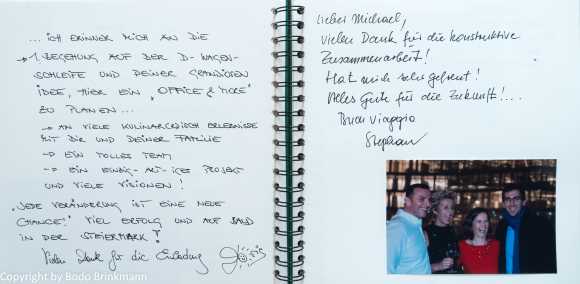 ...ICH ERINNER MICH AN DIE
→ 1. BEGEHUNG AUF DER D-WAGEN-
SCHLEIFE UND DEINER GRANDIOSEN
IDEE, HIER EIN „OFFICE & MORE"
ZU PLANEN...
→ AN VIELE KULINARISCH ERLEBNISSE
MIT DIR UND DEINER FAMILIE
→ EIN TOLLES TEAM
→ EIN EINZIG-ART-IGES PROJEKT
UND VIELE VISIONEN!
„JEDE VERÄNDERUNG IST EINE NEUE
CHANCE!" VIEL ERFOLG UND AUF BALD
IN DER STEIERMARK!
Vielen Dank für die Einladung
Lieber Michael,
vielen Dank für die konstruktive
Zusammenarbeit!
Hat mich sehr gefreut!
Alles Gute für die Zukunft!...
Buon Viaggio
Stephan
Copyright by Bodo Brinkmann